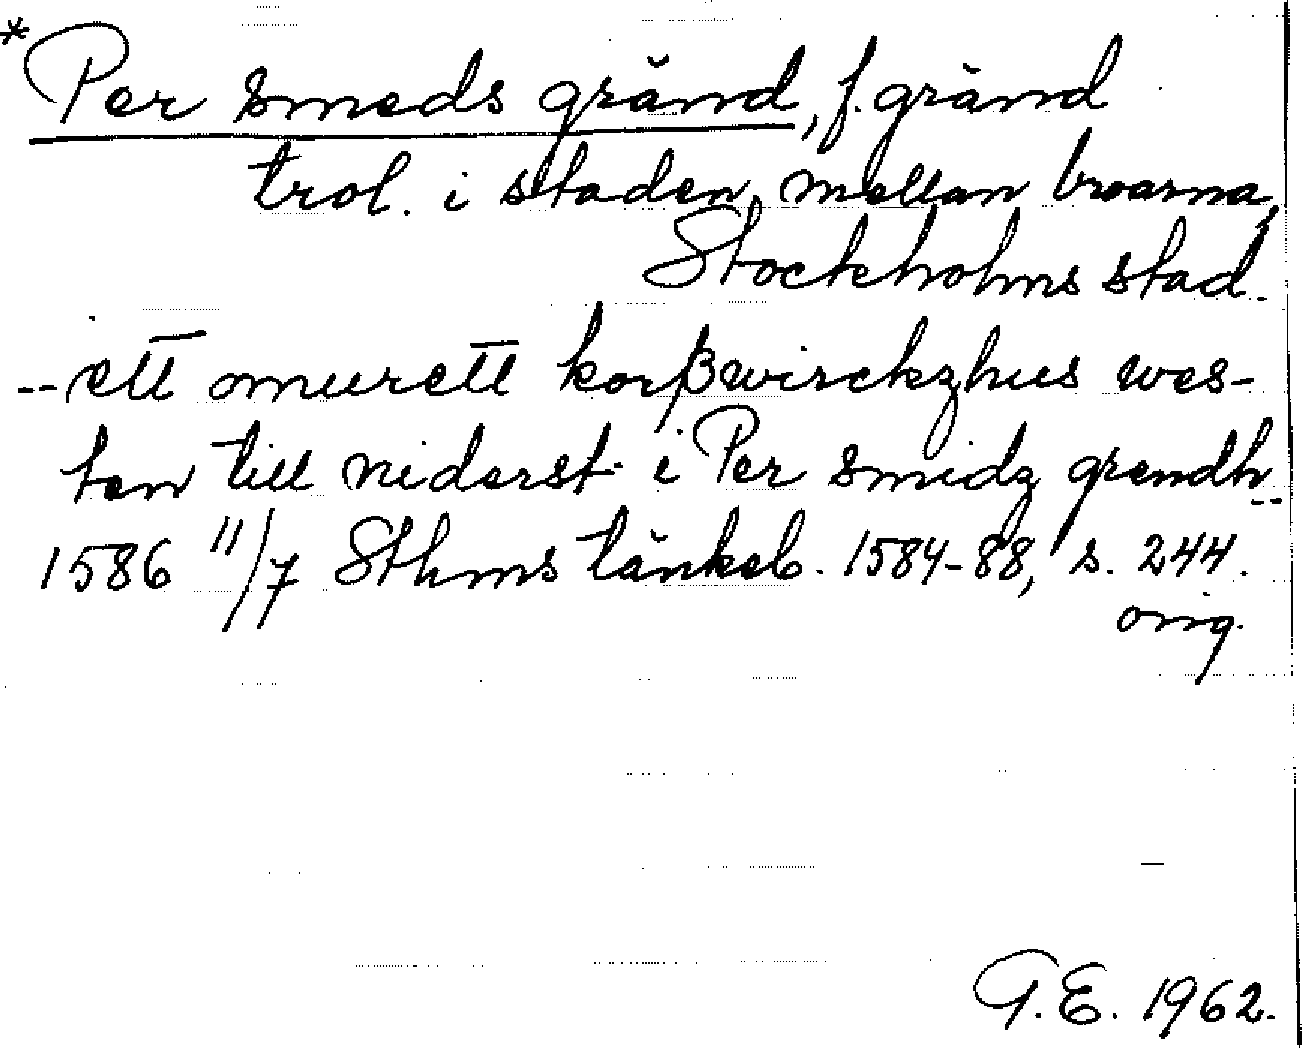 * Per Smeds gränd, f. gränd
trol. i staden mellan broarna,
Stockholms stad.
-- ett omurett korßwirckzhus wes-
ten till nederst i Per smidz grendh --
1586 11/7 Sthms tänkeb. 1584-88, s. 244.
orig.
G.E. 1962.